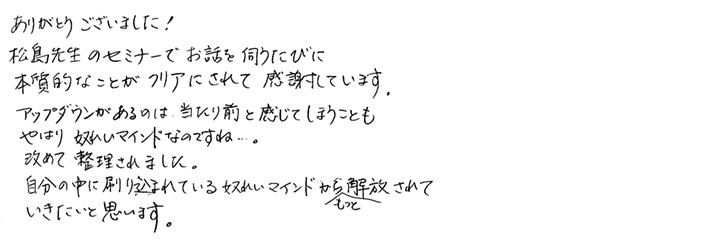 ありがとうございました！
松島先生のセミナーでお話を伺うたびに
本質的なことがクリアにされて感謝しています。
アップダウンがあるのは、当たり前と感じてしまうことも
やはり奴れいマインドなのですね…。
改めて整理されました。
自分の中に刷り込まれている奴れいマインドからもっと解放されて
いきたいと思います。